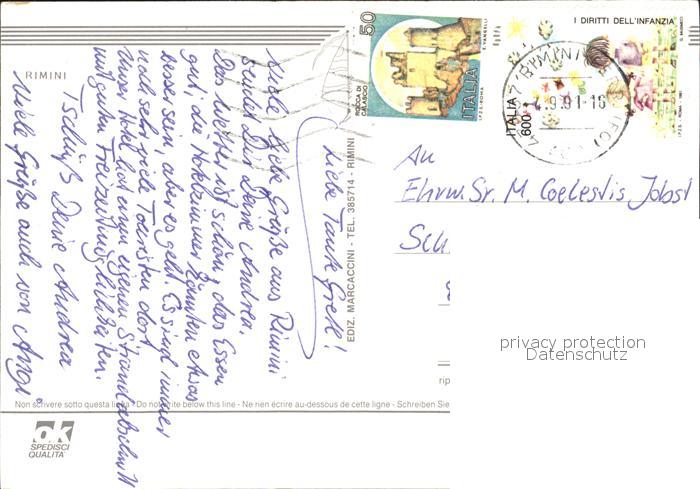 RIMINI
Liebe Tante Gretl!
Viele liebe Grüße aus Rimini
sendet Dir Deine Andrea.
Das Wetter ist schön, das Essen
gut, die Hotelzimmer könnten etwas
besser sein, aber es geht. Es sind immer
noch sehr viele Touristen dort.
Unser Hotel hat einen eigenen Strandabschnitt
mit guten Freizeitmöglichkeiten.
Tschüß Deine Andrea
Viele Grüße auch von
EDIZ. MARCACCINI - TEL. 385714 - RIMINI
50
ROCCA DI CALASCIO
E. VANGELLI
ITALIA
I.P.Z.S. ROMA
I DIRITTI DELL'INFANZIA
ITALIA
600
I.P.Z.S. - ROMA - 1991
RIMINI
.9.91-16
An
Ehrw. Sr. M. Coelestis Jobst
Sch
privacy protection
Datenschutz
rip
Non scrivere sotto questa linea - Do not write below this line - Ne rien écrire au-dessous de cette ligne - Schreiben Sie
ok
SPEDISCI
QUALITA'